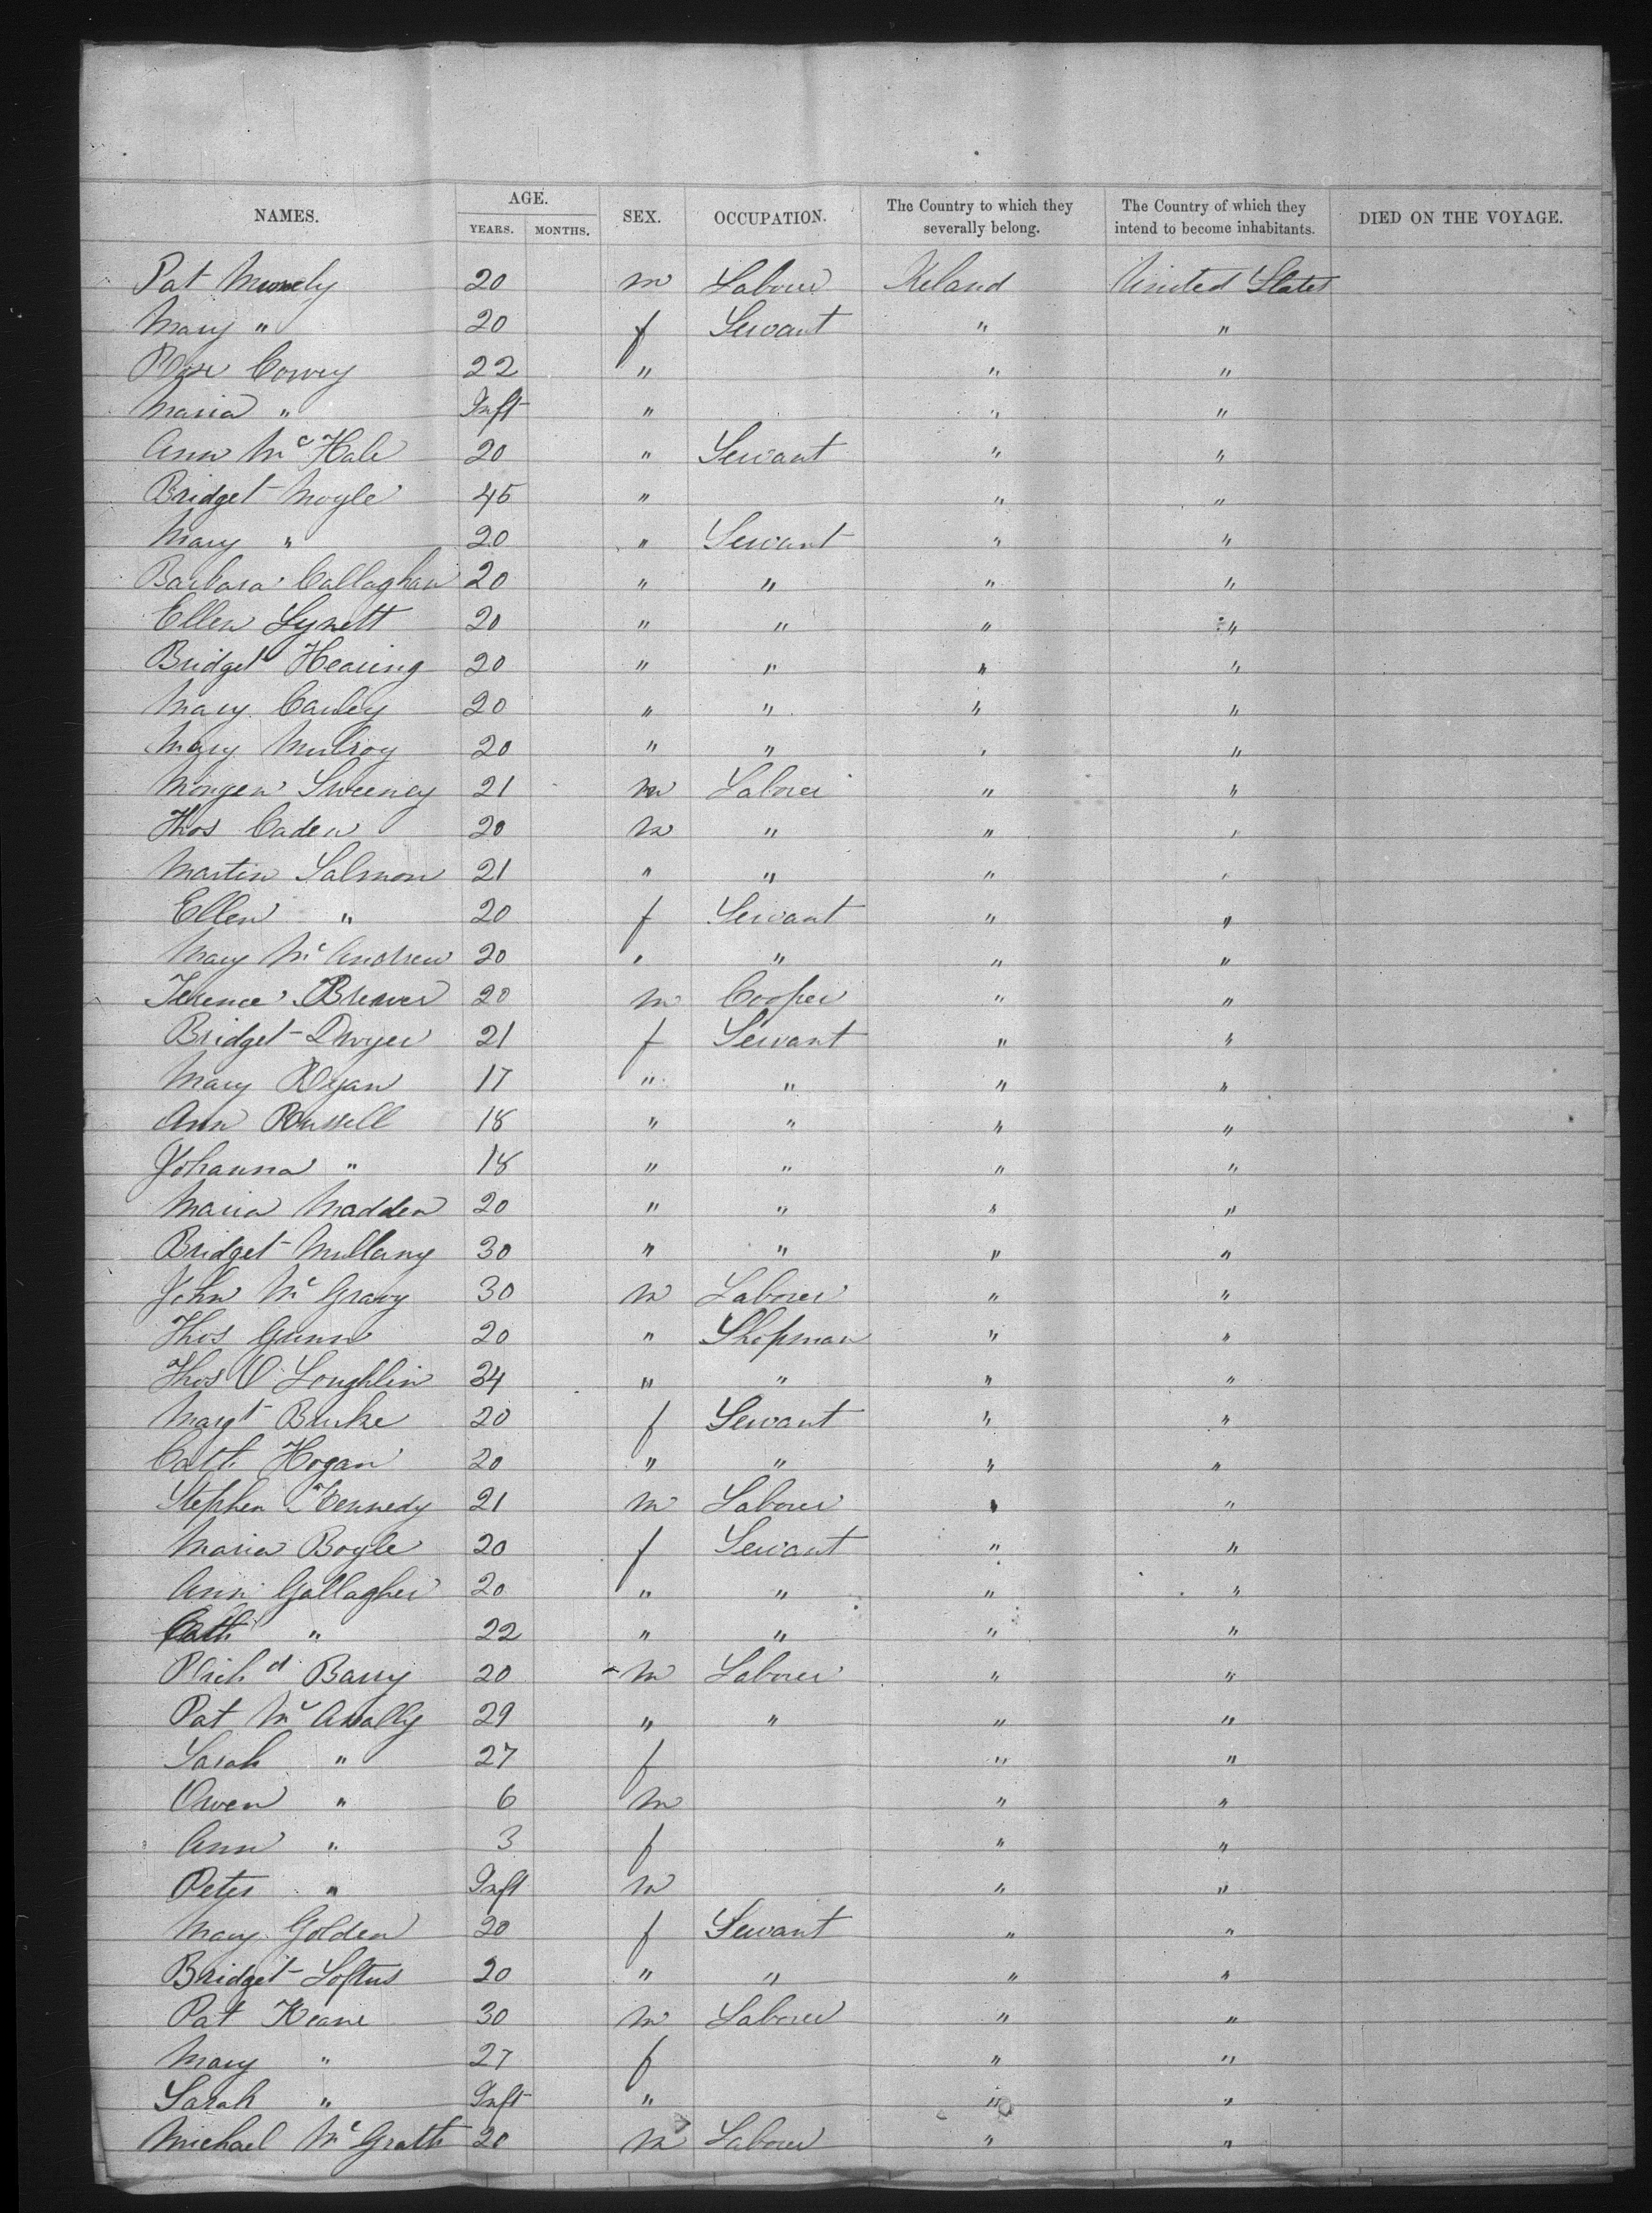 NAMES. AGE. YEARS. MONTHS. SEX. OCCUPATION. The Country to which they severally belong. The Country of which they intend to become inhabitants. DIED ON THE VOYAGE.
Pat 20 m Laborer Ireland United States
Mary " 20 f Servant " "
Rose Convey 22 " " "
Maria " Inft " " "
Ann McHale 20 " Servant " "
Bridget Moyle 45 " " "
Mary " 20 " Servant " "
Barbara Callaghan 20 " " " "
Ellen Lynett 20 " " " "
Bridget Hearing 20 " " " "
Mary Cawley 20 " " " "
Mary Mulroy 20 " " " "
Morgen Sweeney 21 m Laborer " "
Thos Caden 20 m " " "
Martin Salmon 21 " " " "
Ellen " 20 f Servant " "
Mary McAndrew 20 " " " "
Terence Brewer 20 m Cooper " "
Bridget Dwyer 21 f Servant " "
Mary Ryan 17 " " " "
Ann Russell 18 " " " "
Johanna " 18 " " " "
Maria Madden 20 " " " "
Bridget Mullany 30 " " " "
John McGravy 30 m Laborer " "
Thos Gunn 20 " Shopman " "
Thos O'Loughlin 24 " " " "
Margt Burke 20 f Servant " "
Cath Hogan 20 " " " "
Stephen Kennedy 21 m Laborer " "
Maria Boyle 20 f Servant " "
Ann Gallagher 20 " " " "
Cath " 22 " " " "
Richd Barry 20 m Laborer " "
Pat McAnally 29 " " " "
Sarah " 27 f " "
Owen " 6 m " "
Ann " 3 f " "
Peter " Inft m " "
Mary Golden 20 f Servant " "
Bridget Loftus 20 " " " "
Pat Keane 30 m Laborer " "
Mary " 27 f " "
Sarah " Inft " " "
Michael McGrath 20 m Laborer " "